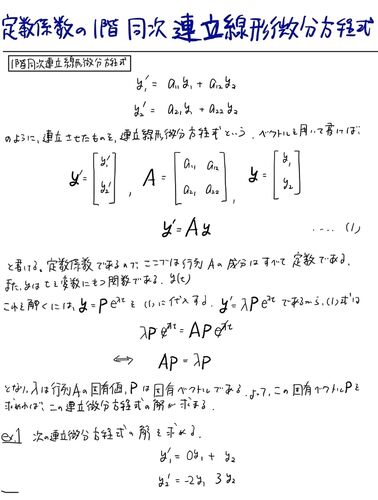 定数係数の1階同次連立線形微分方程式
1階同次連立線形微分方程式
y₁' = a₁₁y₁ + a₁₂y₂
y₂' = a₂₁y₁ + a₂₂y₂
のように、連立させたものを、連立線形微分方程式という。ベクトルを用いて書けば、
y' = [y₁' y₂'] , A = [a₁₁ a₁₂ a₂₁ a₂₂] , y = [y₁ y₂]
y' = Ay ····· (1)
と書ける。定数係数であるので、ここでは行列Aの成分はすべて定数である。
また、yはtを変数にもつ関数である。y(t)
これを解くには、y = Pe^λt を (1)に代入する。y' = λPe^λt であるから、(1)式は
λPe^λt = APe^λt
⇔ AP = λP
となり、λは行列Aの固有値、Pは固有ベクトルである。よって、この固有ベクトルPを
求めれば、この連立微分方程式の解が求まる。
ex.1 次の連立微分方程式の解を求める。
y₁' = 0y₁ + y₂
y₂' = -2y₁ 3y₂